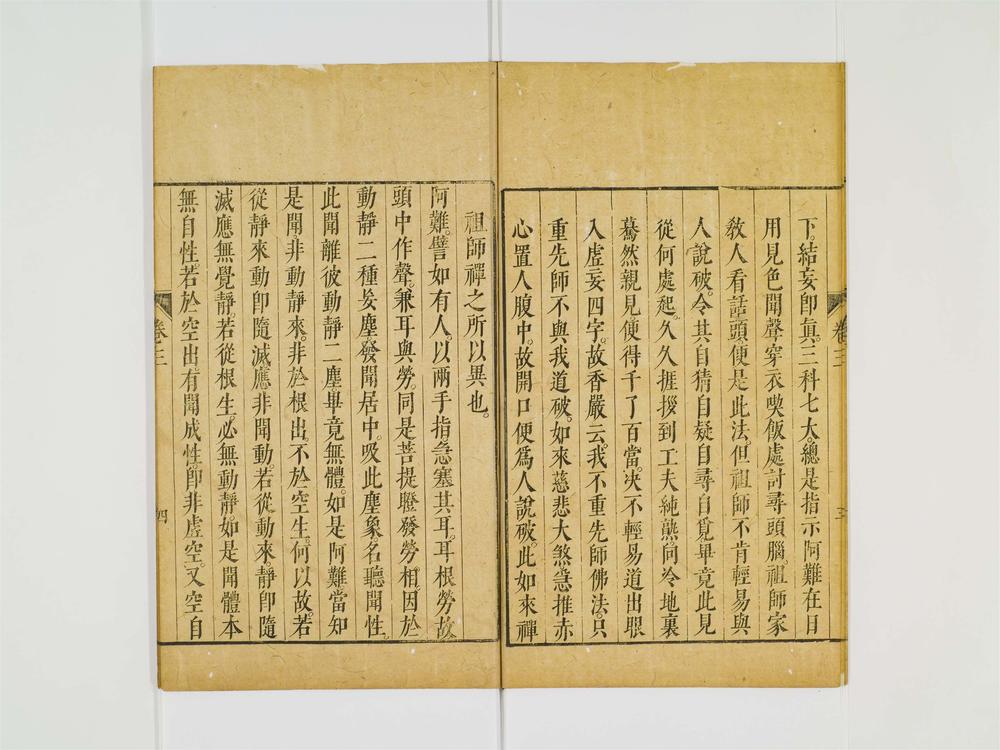 下。結妄卽眞。三科七大。總是指示阿難在日
用見色聞聲穿衣喫飯處討尋頭腦。祖師家
敎人看話頭便是此法。但祖師不肯輕易與
人說破。令其自猜自疑自尋自覓畢竟此見
從何處起。久久捱拶到工夫純熟向冷地裏
驀然親見。便得千了百當。决不輕易道出眼
入虛妄四字。故香嚴云。我不重先師佛法。只
重先師不與我道破。如來慈悲大煞急推赤
心置人腹中。故開口便爲人說破此如來禪
卷三
三
祖師禪之所以異也。
阿難。譬如有人。以兩手指急塞其耳。耳根勞故
頭中作聲。兼耳與勞。同是菩提瞪發勞相。因於
動靜二種妄塵發聞居中。吸此塵象名聽聞性。
此聞離彼動靜二塵畢竟無體。如是阿難當知
是聞非動靜來。非於根出。不於空生。何以故。若
從靜來動卽隨滅應非聞動。若從動來。靜卽隨
滅應無覺靜。若從根生。必無動靜。如是聞體本
無自性。若於空出有聞成性。卽非虛空。又空自
卷三
四